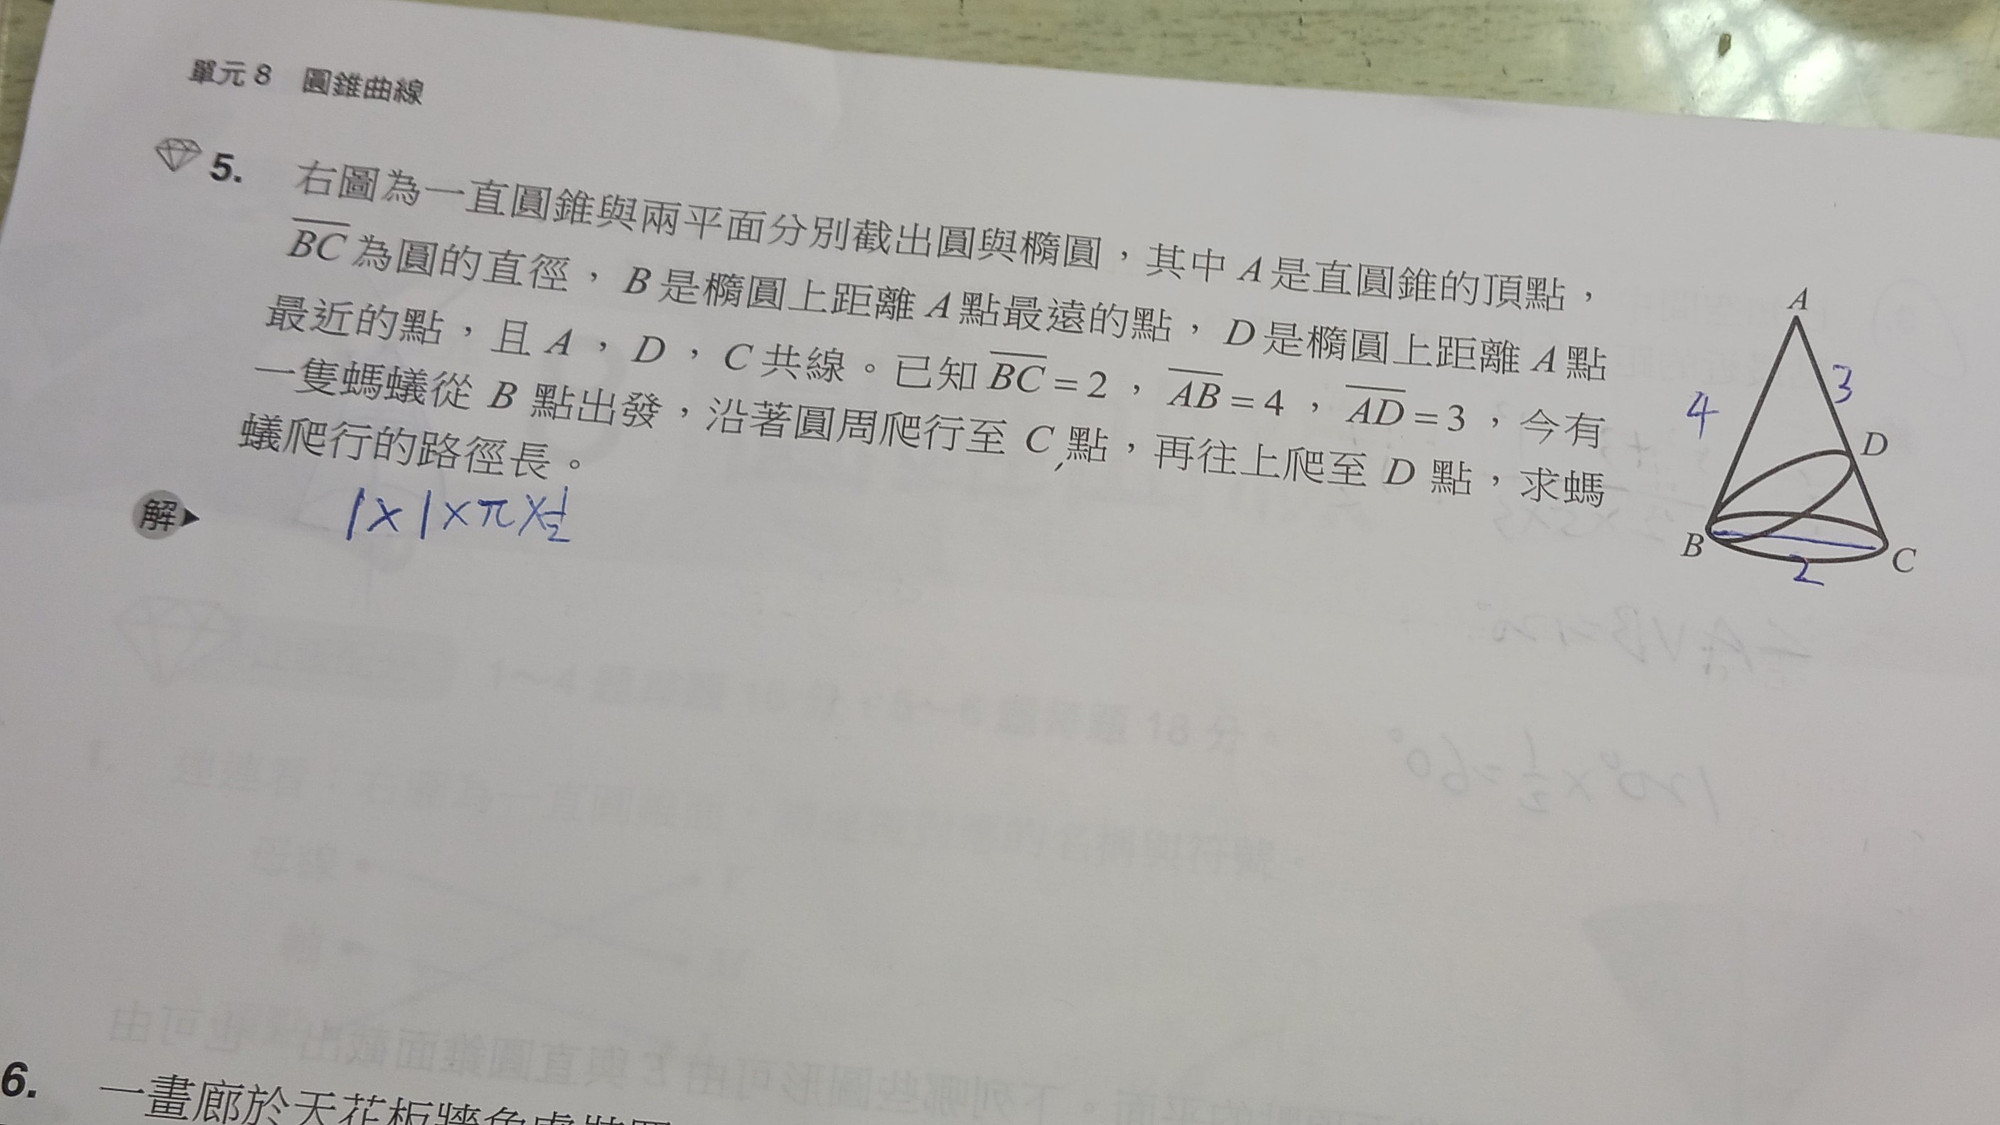 單元 8 圓錐曲線
5. 右圖為一直圓錐與兩平面分別截出圓與橢圓，其中 A 是直圓錐的頂點，
BC 為圓的直徑，B 是橢圓上距離 A 點最遠的點，D 是橢圓上距離 A 點
最近的點，且 A，D，C 共線。已知 BC = 2，AB = 4，AD = 3，今有
一隻螞蟻從 B 點出發，沿著圓周爬行至 C 點，再往上爬至 D 點，求螞
蟻爬行的路徑長。
A
3
4
D
B
C
2
解 1×1×π×1/2
6. 一畫廊於天花板牆角處裝